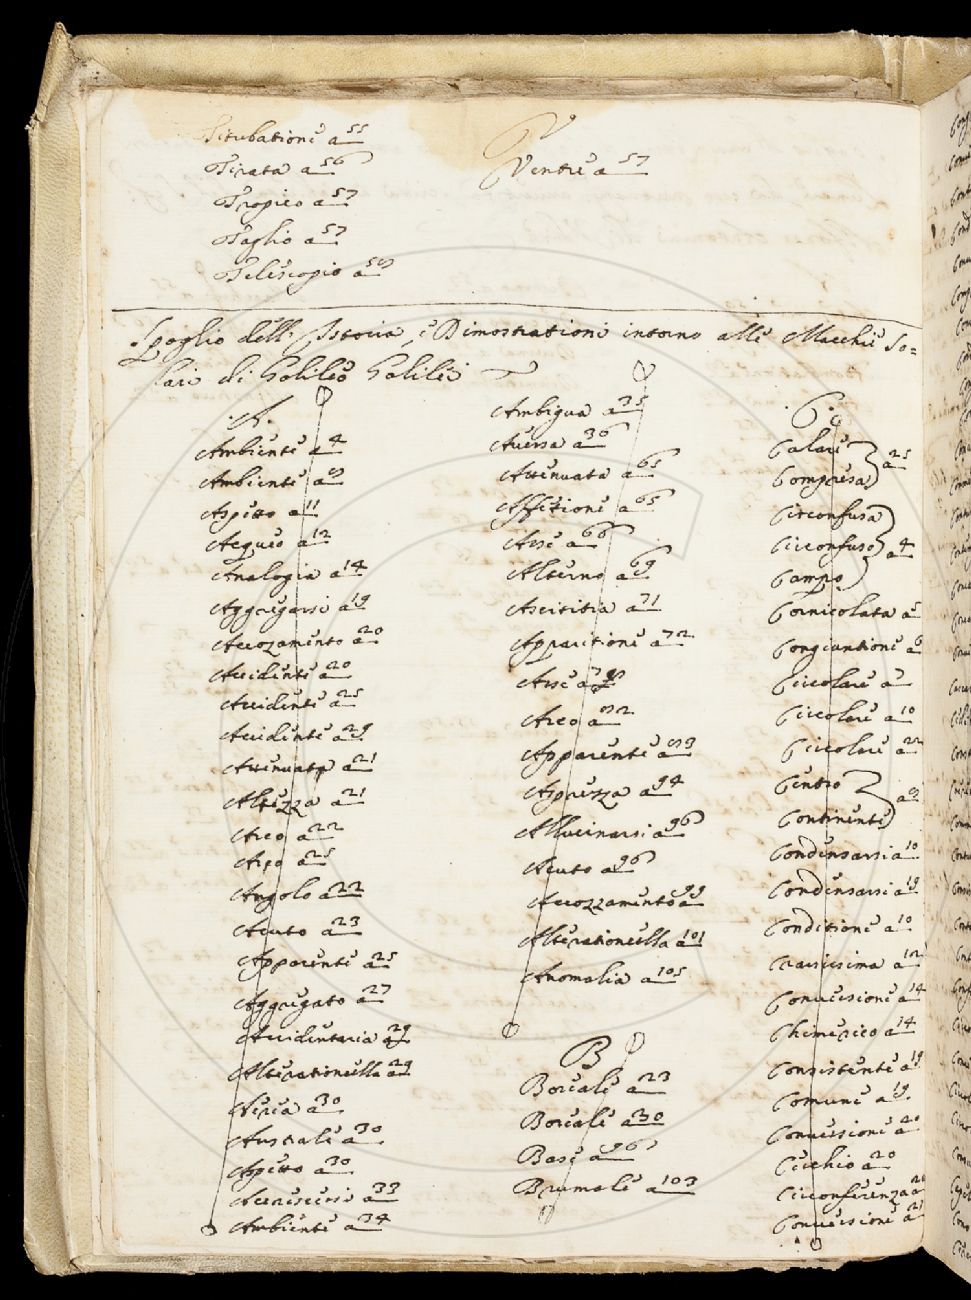 Titubatione a 55
Tirata a 56
Tropico a 57
Taglio a 57
Telescopio a 58
V
Ventre a 57
Spoglio dell' Istoria, e Dimostrationi intorno alle Macchie So=
lari di Galileo Galilei
.A.
Ambiente a 4
Ambiente a 9
Aspetto a 11
Aequeo a 12
Analogia a 14
Aggregarsi a 19
Accozamento a 20
Accidente a 20
Accidente a 25
Accidente a 29
Attenuata a 21
Altezza a 21
Arco a 22
Arco a 25
Angolo a 22
Acuto a 23
Apparente a 25
Aggregato a 27
Accidentaria a 29
Alterationcella a 29
Aerea a 30
Australe a 30
Aspetto a 30
Accrescersi a 33
Ambiente a 34
Ambigua a 35
Aversa a 36
Attenuata a 65
Affetioni a 65
Asse a 66
Alterno a 69
Ascititia a 71
Apparitione a 72
Asse a 78
Arco a 82
Apparente a 83
Aprezza a 94
Allucinarsi a 96
Acuto a 96
Accozzamento a 99
Alterationcella a 101
Anomalia a 105
B
Boreale a 23
Boreale a 30
Base a 96
Brumale a 103
.C.
Calare
Compresa a 25
Circonfusa
Circonfuso a 4
Campo
Cornicolata a 5
Congiuntione a 6
Circolare a 7
Circolare a 10
Circolare a 22
Centro
Continente a 9
Condensarsi a 10
Condensarsi a 19
Conditione a 10
Crassissima a 12
Conversione a 14
Chimerico a 14
Consistente a 19
Comune a 19
Conversione a 20
Cerchio a 20
Circonferenza a 21
Conversione a 21